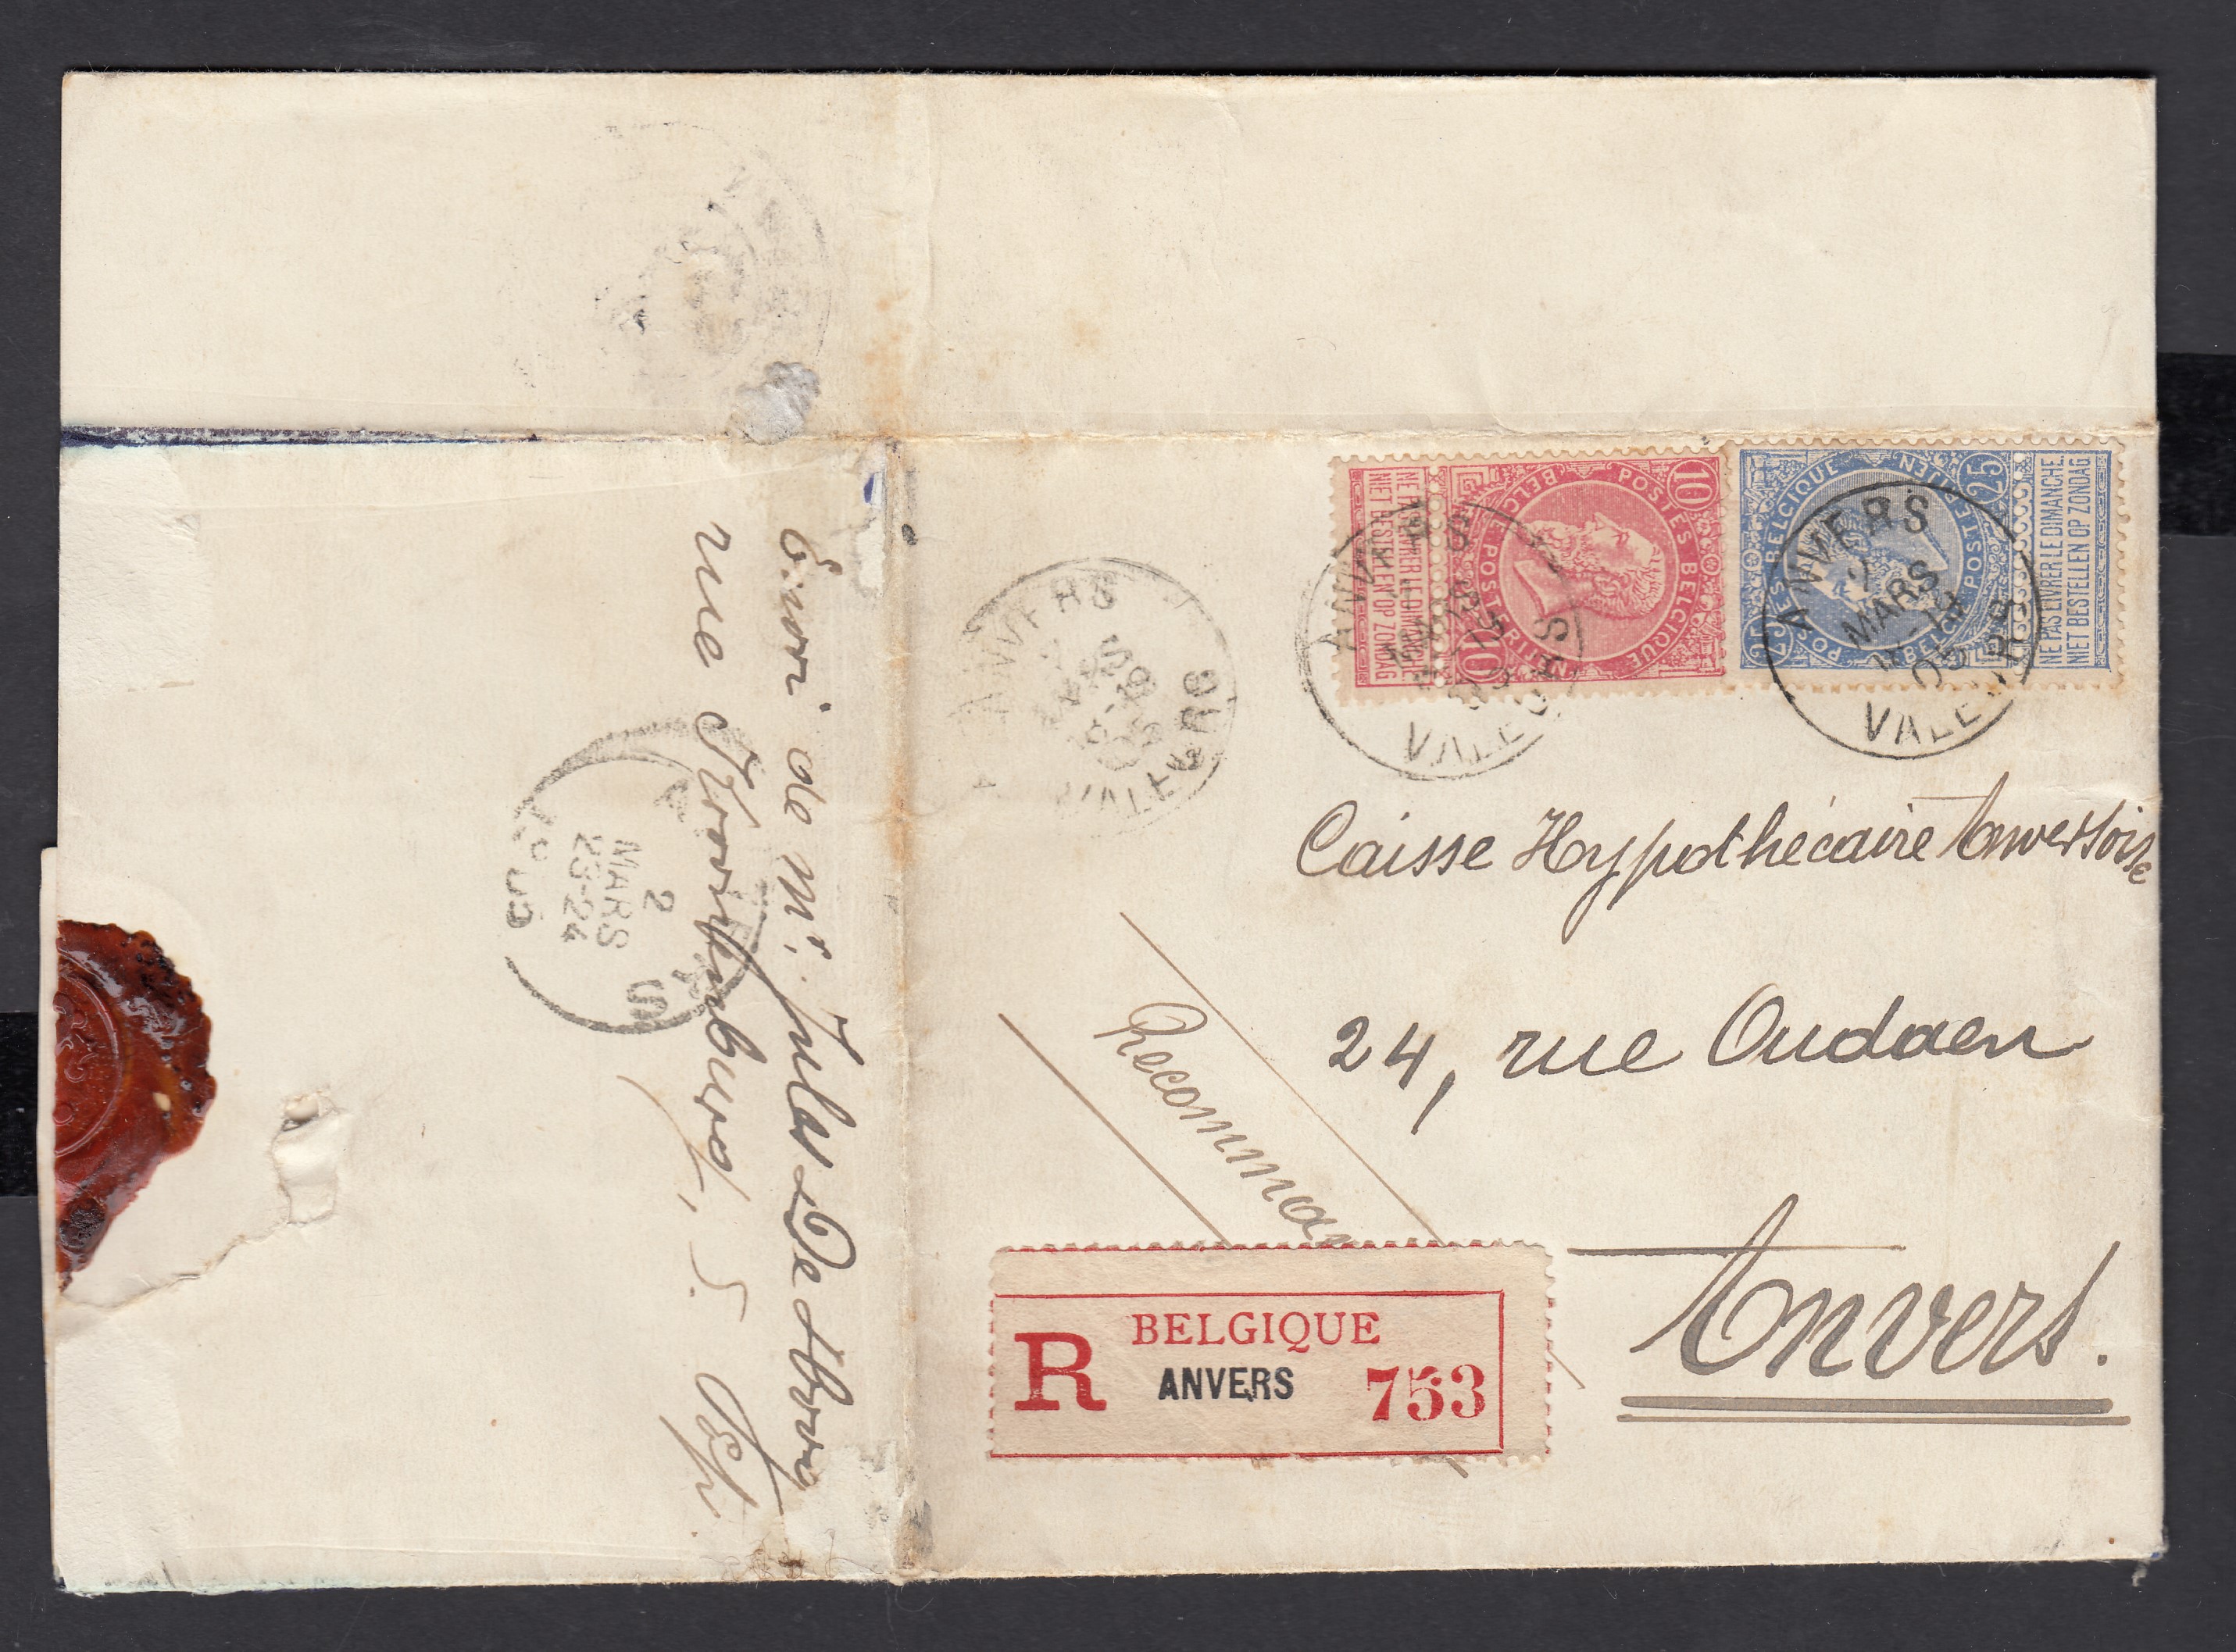 POSTES BELGIQUE
BELGIË POSTERIJEN
10
10
NE PAS LIVRER LE DIMANCHE
NIET BESTELLEN OP ZONDAG
25
25
POSTES BELGIQUE
BELGIË POSTERIJEN
NE PAS LIVRER LE DIMANCHE.
NIET BESTELLEN OP ZONDAG
ANVERS
2
MARS
05
VALEURS
ANVERS
VALEURS
ANVERS
MARS
05
VALEURS
Caisse Hypothécaire Anversoise
24, rue Oudaen
Anvers.
Recomman
BELGIQUE
R
ANVERS
753
Envoi de Mr. Jules De
rue
, 5.
ANVERS
2
MARS
23-24